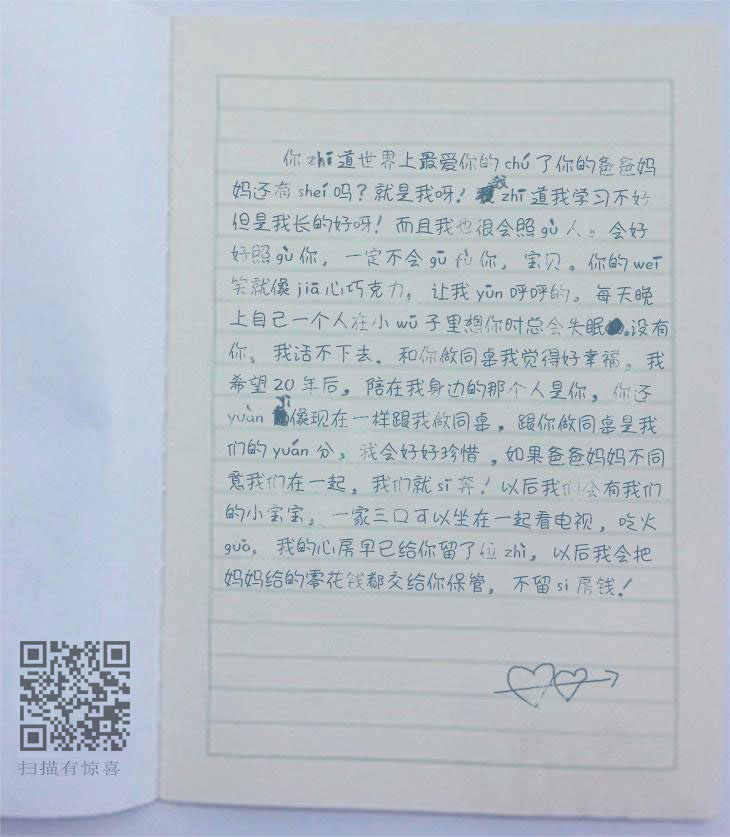 你zhī道世界上最爱你的chú了你的爸爸妈
妈还有sheí吗？就是我呀！我zhī道我学习不好
但是我长的好呀！而且我也很会照gù人。会好
好照gù你，一定不会gū fù你，宝贝。你的weī
笑就像jiā心巧克力，让我yūn呼呼的。每天晚
上自己一个人在小wū子里想你时总会失眠。没有
你，我话不下去．和你做同桌我觉得好幸福。我
希望20年后，陪在我身边的那个人是你，你还
yuàn yì像现在一样跟我做同桌，跟你做同桌是我
们的yuán分，我会好好珍惜，如果爸爸妈妈不同
意我们在一起，我们就sī奔！以后我们会有我们
的小宝宝，一家三口可以坐在一起看电视，吃火
guō，我的心房早已给你留了位zhì，以后我会把
妈妈给的零花钱都交给你保管，不留si房钱！
扫描有惊喜